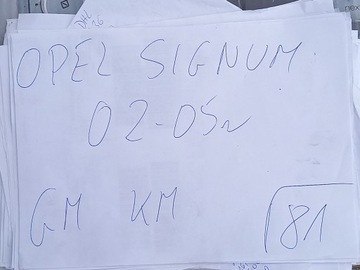 OPEL SIGNUM
02-05r
GM KM 81